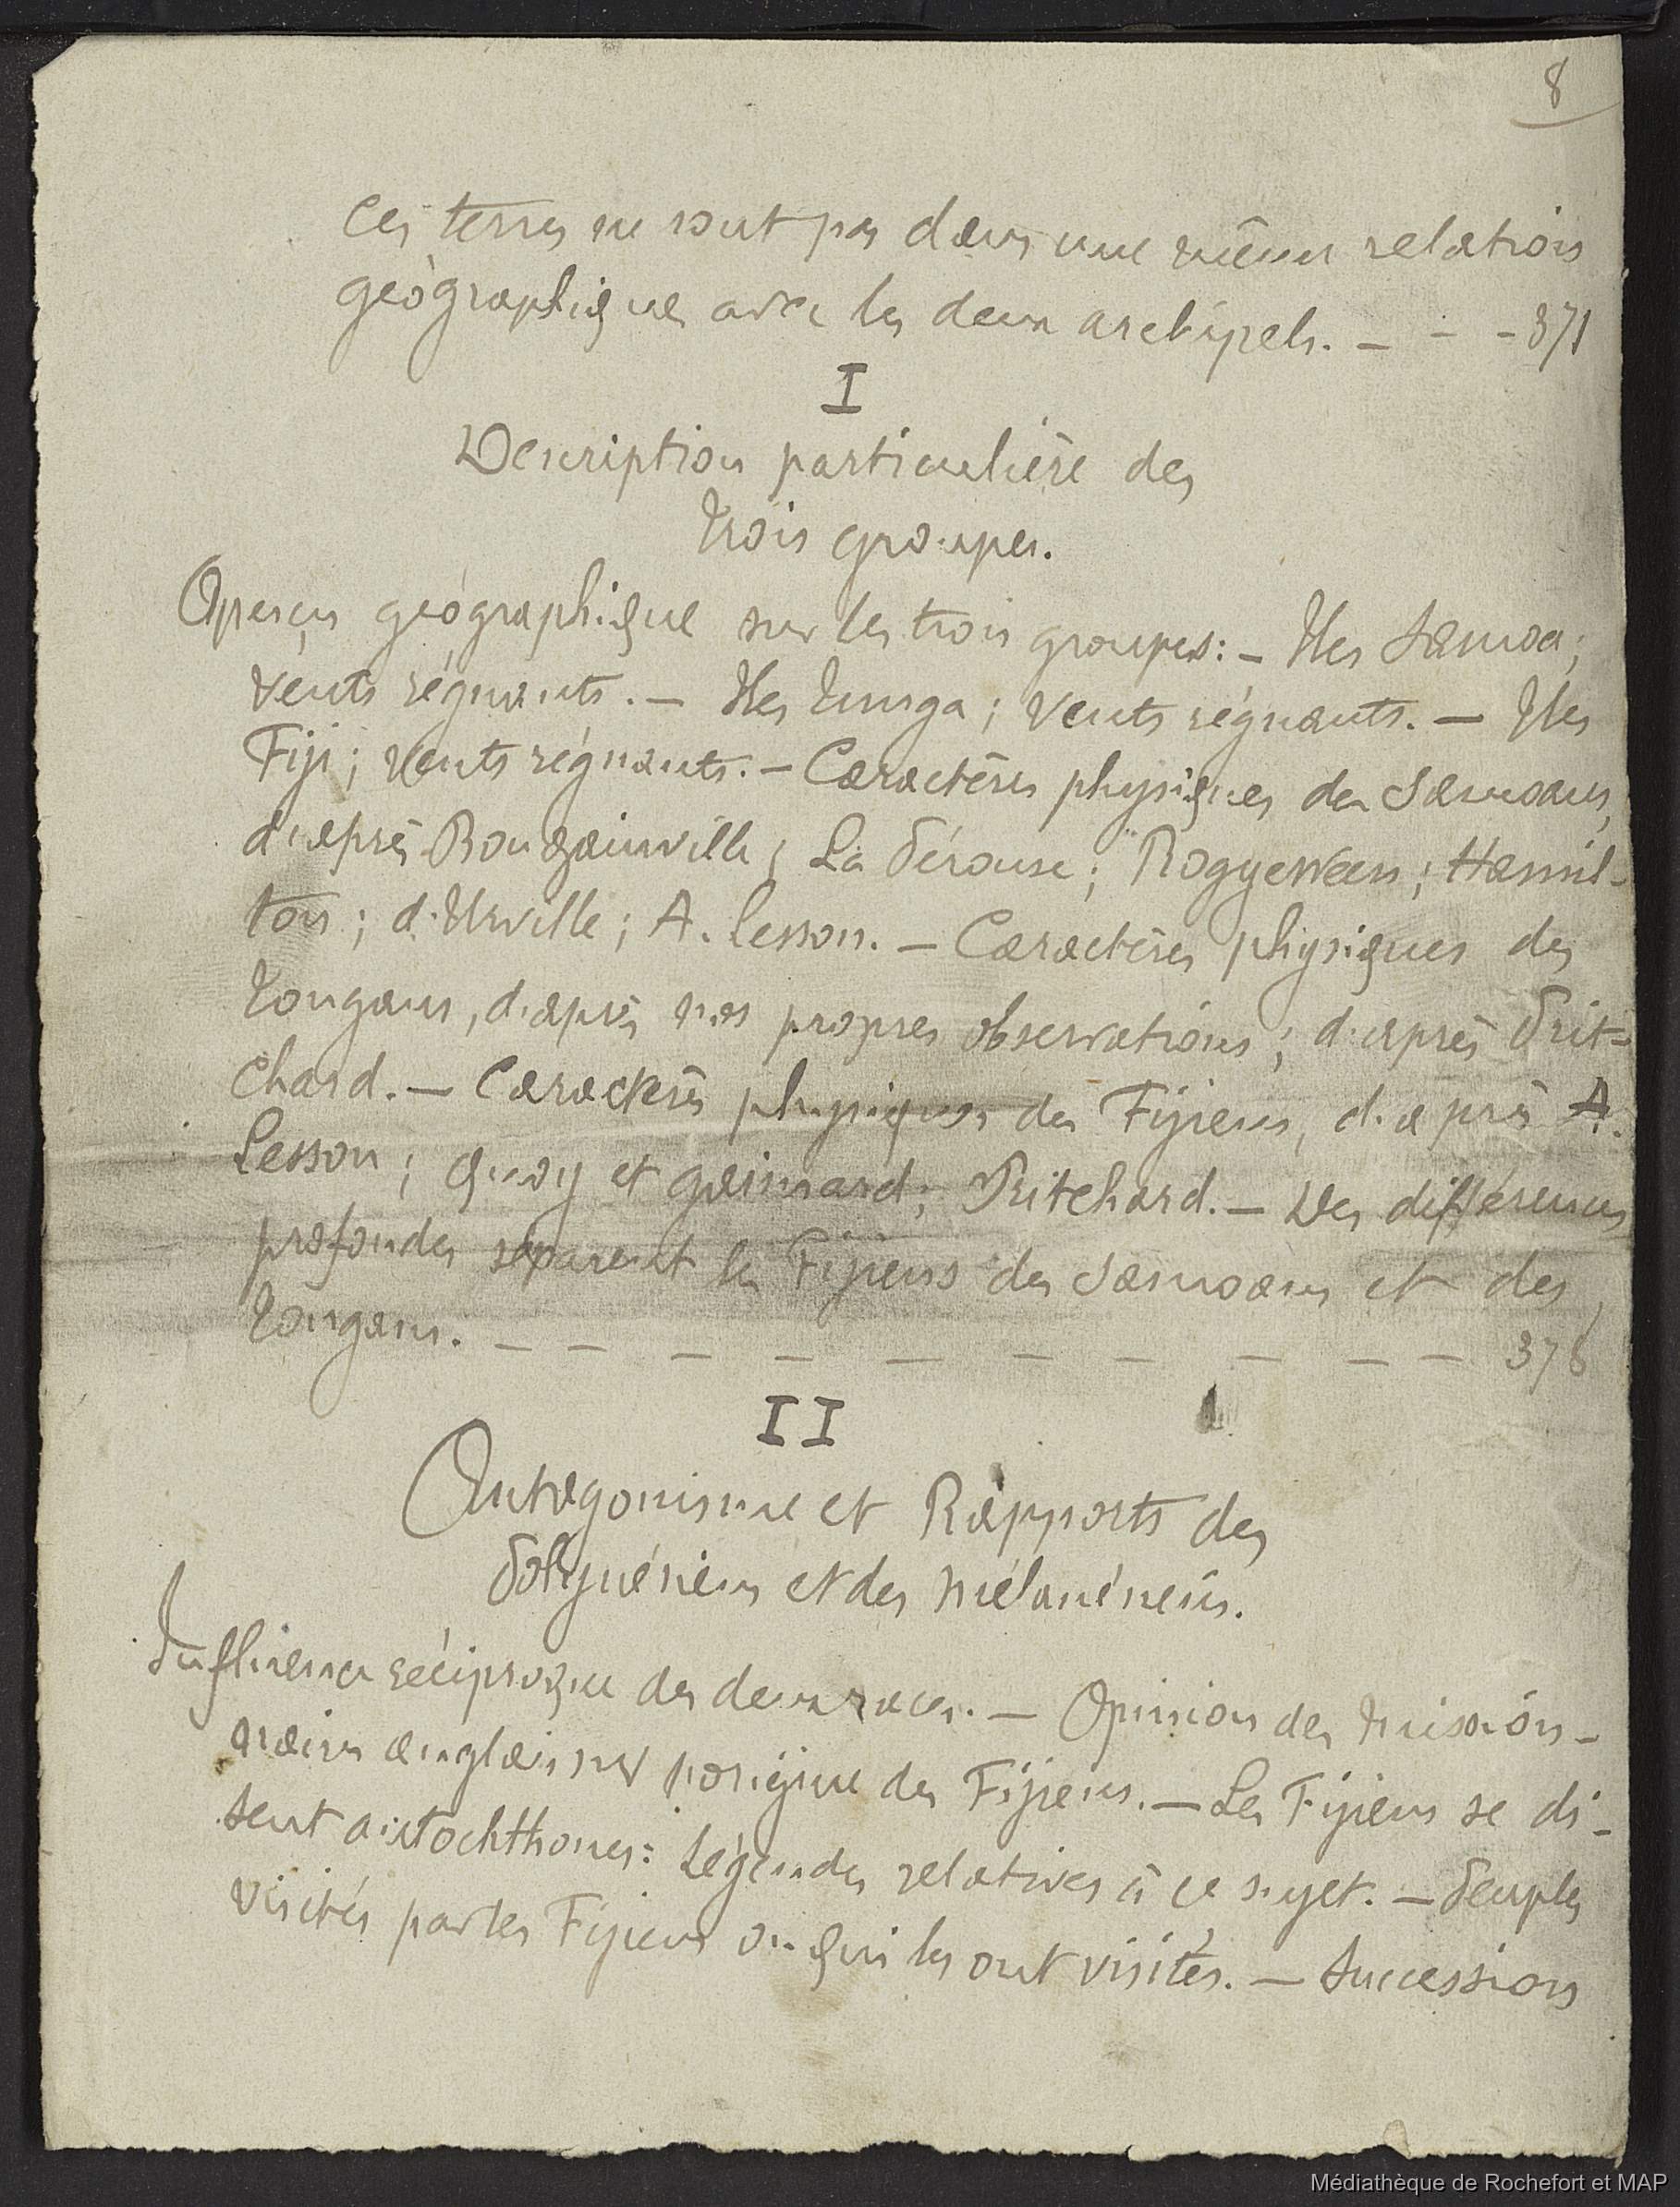 8
Ces terres ne sont pas dans une même relation
géographique avec les deux archipels. — - - 371
I
Description particulière des
trois groupes.
Aperçu géographique sur les trois groupes: — Iles Samoa;
vents régnants. — Iles Tunga; vents régnants. — Iles
Fiji; vents régnants. — Caractères physiques des Samoans,
d'après Bougainville; La Pérouse; Roggeween; Hamil-
ton; d'Urville; A. Lesson. — Caractères physiques des
Tongans, d'après nos propres observations; d'après Prit-
chard. — Caractères physiques des Fijiens, d'après A.
Lesson; Quoy et Gaimard; Pritchard. — Des différences
profondes séparent les Fijiens des Samoans et des
Tongans. — — — — — — — — — — 376
II
Antagonisme et Rapports des
Polynésiens et des Mélanésiens.
Influence réciproque des deux races. — Opinion des mission-
naires anglais sur l'origine des Fijiens. — Les Fijiens se di-
sent autochthones: Légendes relatives à ce sujet. — Peuples
visités par les Fijiens ou qui les ont visités. — Succession
Médiathèque de Rochefort et MAP